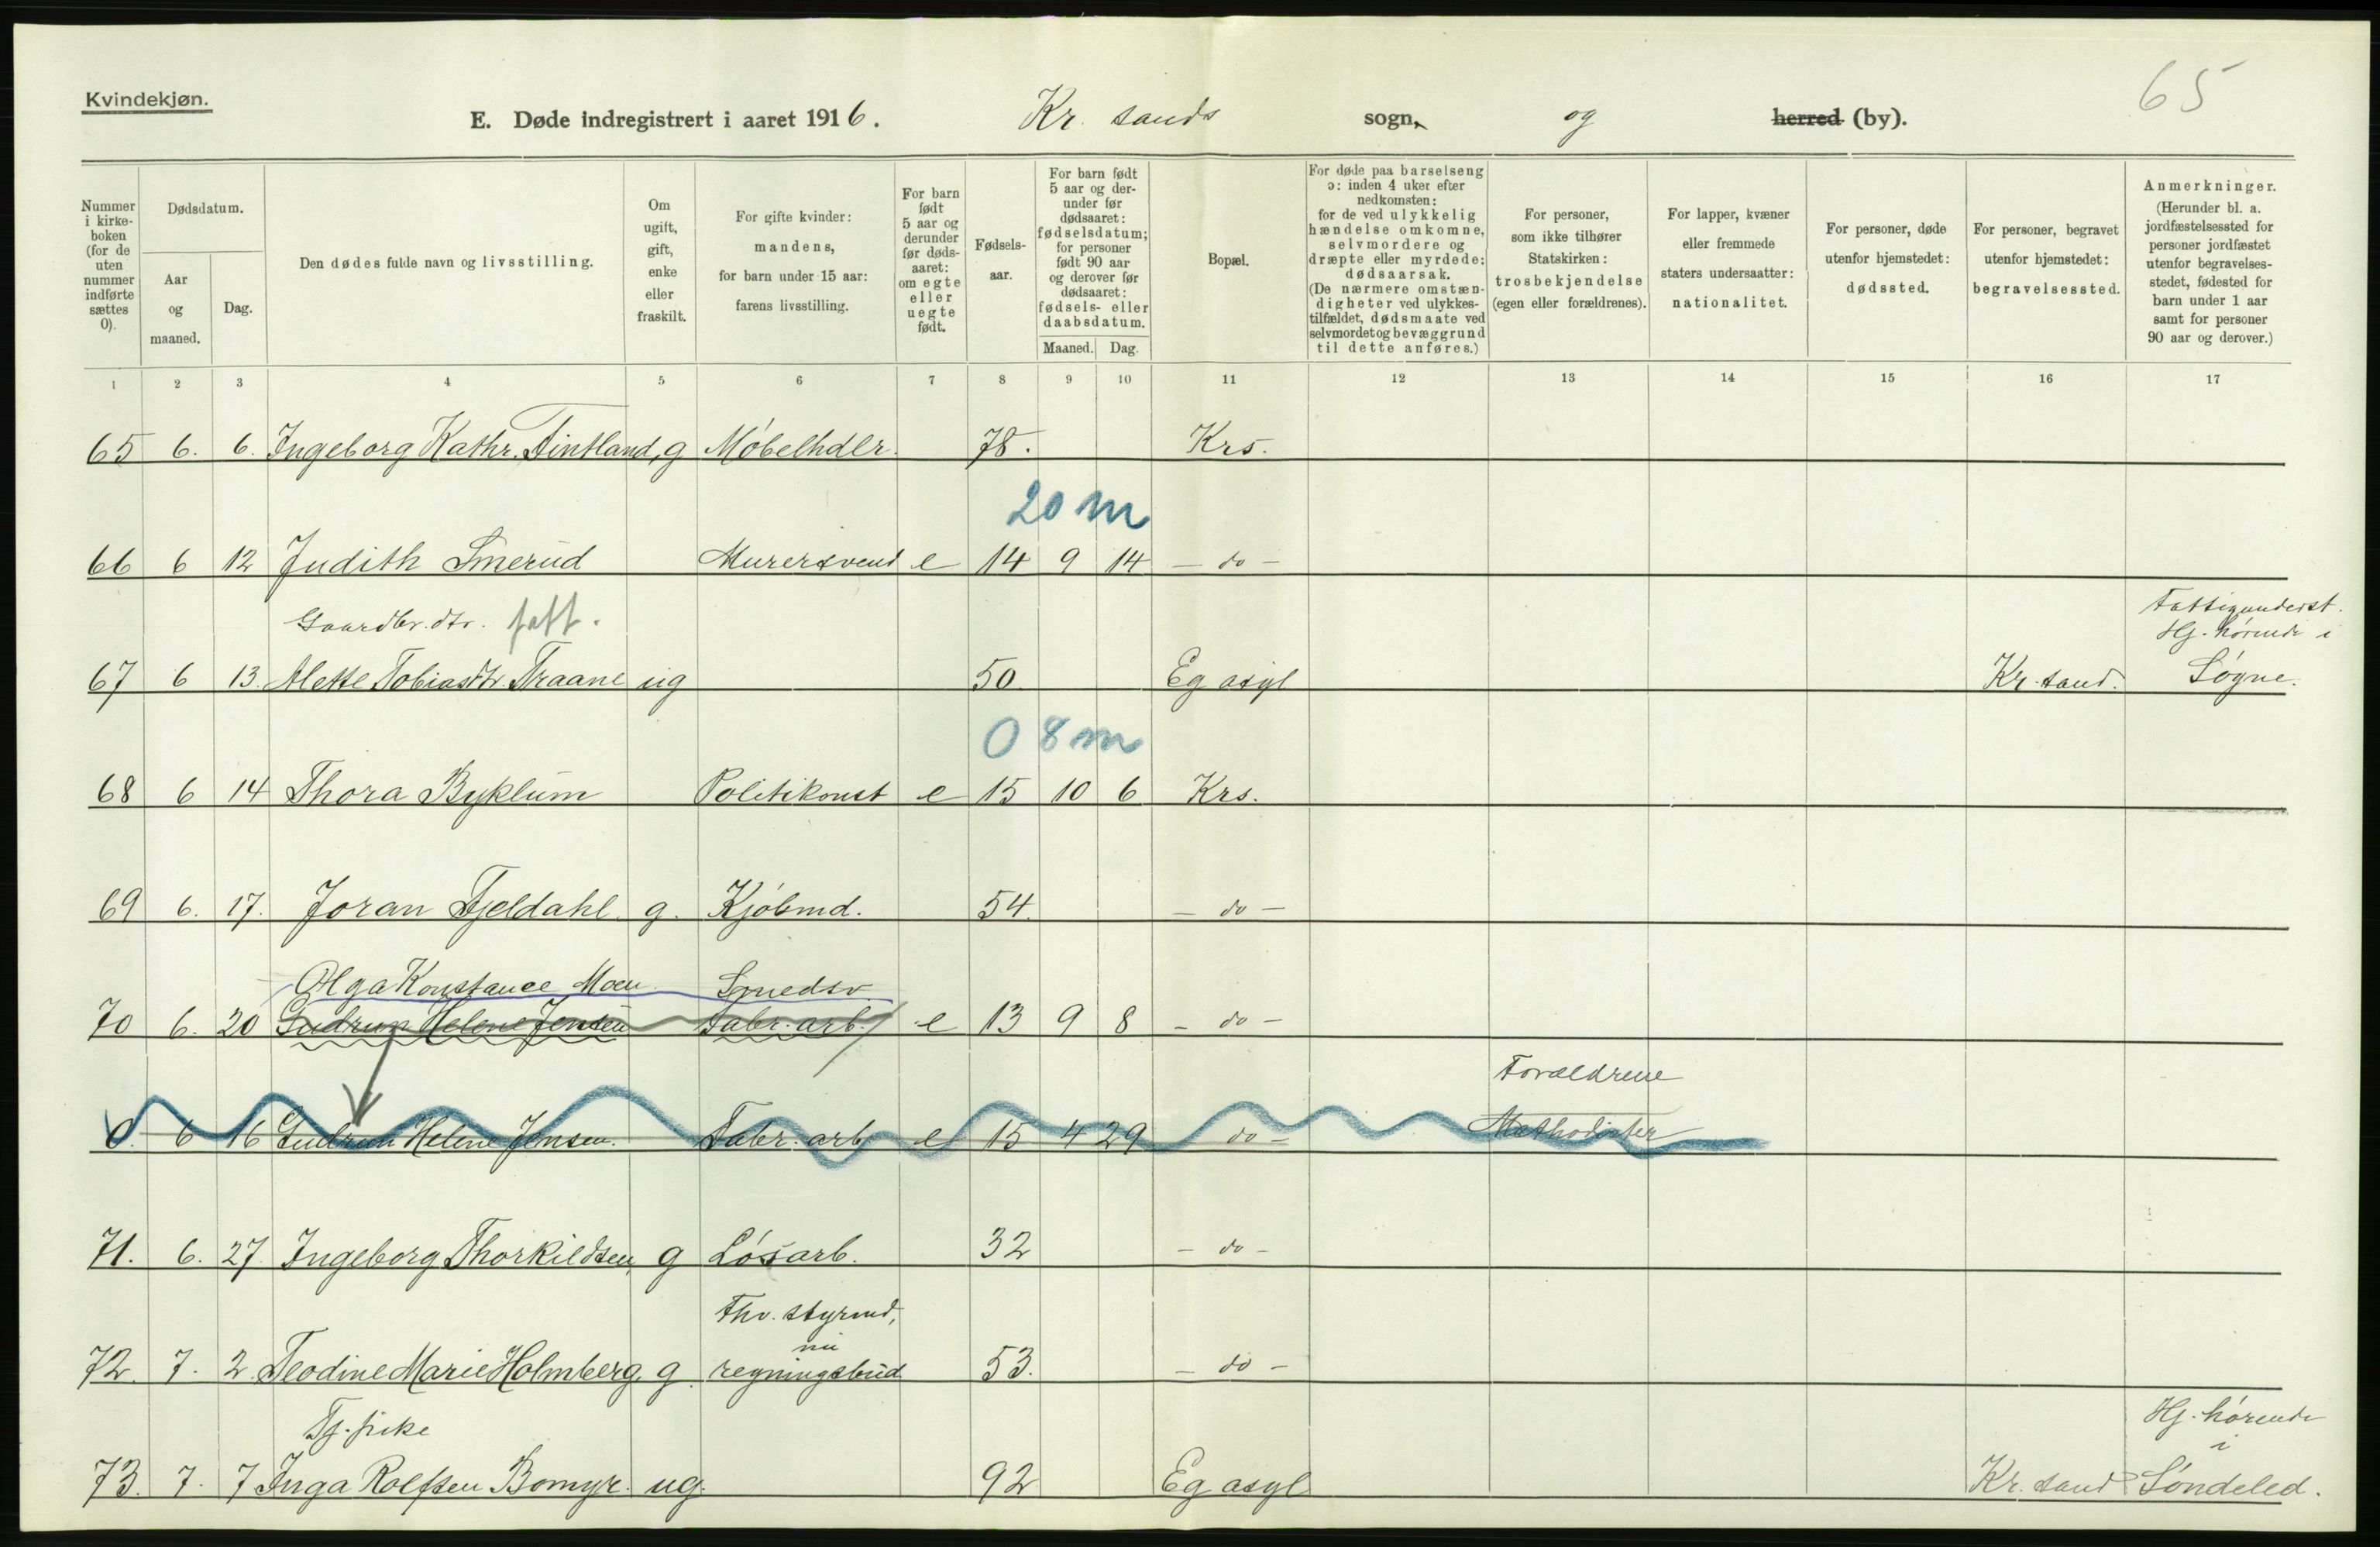 Kvindekjøn.
65
E. Døde indregistrert i aaret 1916. Kr. sands sogn, og herred (by).
Nummer i kirkeboken (for de uten nummer indførte sættes 0).
Dødsdatum.
Aar og maaned.
Dag.
Den dødes fulde navn og livsstilling.
Om ugift, gift, enke eller fraskilt.
For gifte kvinder: mandens, for barn under 15 aar: farens livsstilling.
For barn født 5 aar og derunder før dødsaaret: om egte eller uegte født.
Fødselsaar.
For barn født 5 aar og derunder før dødsaaret: fødselsdatum; for personer født 90 aar og derover før dødsaaret: fødsels- eller daabsdatum.
Maaned. Dag.
Bopæl.
For døde paa barselseng ɔ: inden 4 uker efter nedkomsten: for de ved ulykkelig hændelse omkomne, selvmordere og dræpte eller myrdede: dødsaarsak. (De nærmere omstændigheter ved ulykkestilfældet, dødsmaate ved selvmordet og bevæggrund til dette anføres.)
For personer, som ikke tilhører Statskirken: trosbekjendelse (egen eller forældrenes).
For lapper, kvæner eller fremmede staters undersaatter: nationalitet.
For personer, døde utenfor hjemstedet: dødssted.
For personer, begravet utenfor hjemstedet: begravelsessted.
Anmerkninger. (Herunder bl. a. jordfæstelsessted for personer jordfæstet utenfor begravelsesstedet, fødested for barn under 1 aar samt for personer 90 aar og derover.)
1 2 3 4 5 6 7 8 9 10 11 12 13 14 15 16 17
65 6. 6. Ingeborg Kathr. Fintland, g Møbelhdlr. 78. Krs.
20 m
66 6 12 Judith Smerud Murersvend e 14 9 14 - do -
Gaardbr. dtr. fatt. Fattigunderst.
Hj. hørende i
67 6 13 Mette Tobiasdtr. Traane ug 50. Eg asyl Kr. sand. Søgne.
0 8 m
68 6 14 Thora Byklum Politikonst e 15 10 6 Krs.
69 6. 17. Joran Fjeldahl. g. Kjøbmd. 54. - do -
Olga Konstance Moen. Smedsv.
70 6. 20 Gudrun Helene Jensen Fabr. arb. e 13 9 8 - do -
Forældrene
0. 6 16 Gudrun Helene Jensen. Fabr. arb. e 15 4 29 do - Methodister
71. 6. 27. Ingeborg Thorkildsen, g Løsarb. 32 - do -
Fhv. styrmd,
nu
72. 7. 2. Teodine Marie Holmberg, g. regningsbud 53. - do -
Tj. pike Hj. hørende
i
73. 7. 7 Inga Rolfsen Bomyr. ug. 92 Eg asyl Kr. sand Søndeled.